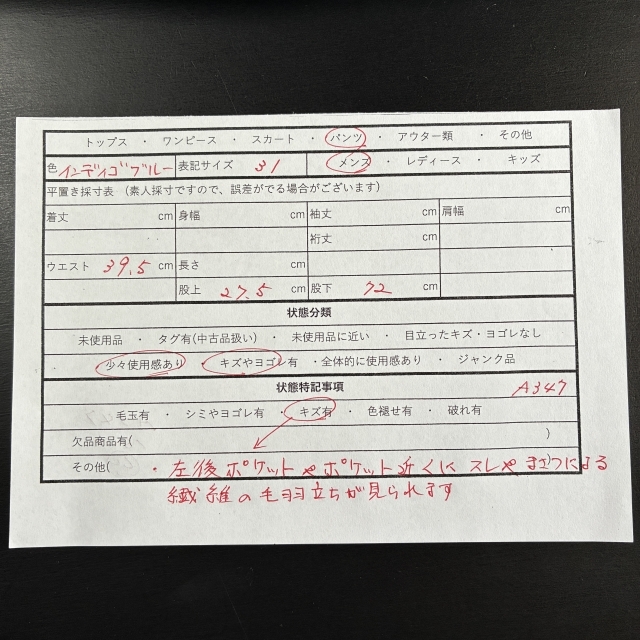 トップス ・ ワンピース ・ スカート ・ パンツ ・ アウター類 ・ その他
色 インディゴブルー 表記サイズ 31 メンズ ・ レディース ・ キッズ
平置き採寸表 (素人採寸ですので、誤差がでる場合がございます)
着丈 cm 身幅 cm 袖丈 cm 肩幅 cm
裄丈 cm
ウエスト 39.5 cm 長さ cm
股上 27.5 cm 股下 72 cm
状態分類
未使用品 ・ タグ有(中古品扱い) ・ 未使用品に近い ・ 目立ったキズ・ヨゴレなし
・ 少々使用感あり ・ キズやヨゴレ有 ・全体的に使用感あり ・ ジャンク品
状態特記事項 A347
毛玉有 ・ シミやヨゴレ有 ・ キズ有 ・ 色褪せ有 ・ 破れ有
欠品商品有( )
その他( ・左後ポケットやポケット近くにスレやまさつによる
繊維の毛羽立ちが見られます